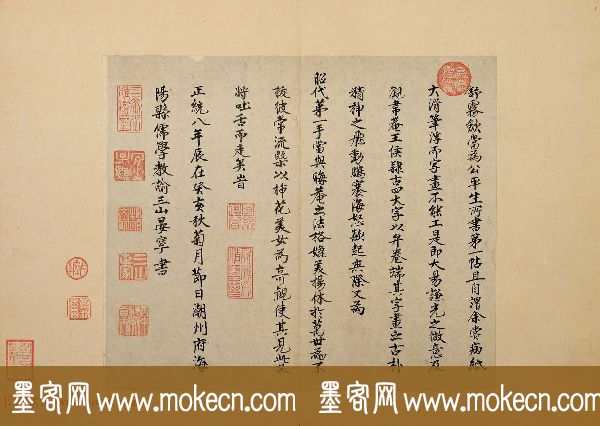 舒霧歛當為公平生所書第一帖且自謂余嘗病紙
大滑筆澤而字畫不能工是即大易謙光之微意及
觀書菴王侯隸古四大字以弁卷端其字畫之古朴
精神之飛動鵬騫海怒歘起無際又為
昭代第一手當與晦菴之法格媲美揚休於荒世為不
彼常流槩以揷花美女為奇觀使其見此
將吐舌而走矣旹
正統八年辰在癸亥秋菊月節日潮州府海
陽縣儒學教諭三山晏寧書
墨客网 www.mokecn.com 墨客网 www.mokecn.com